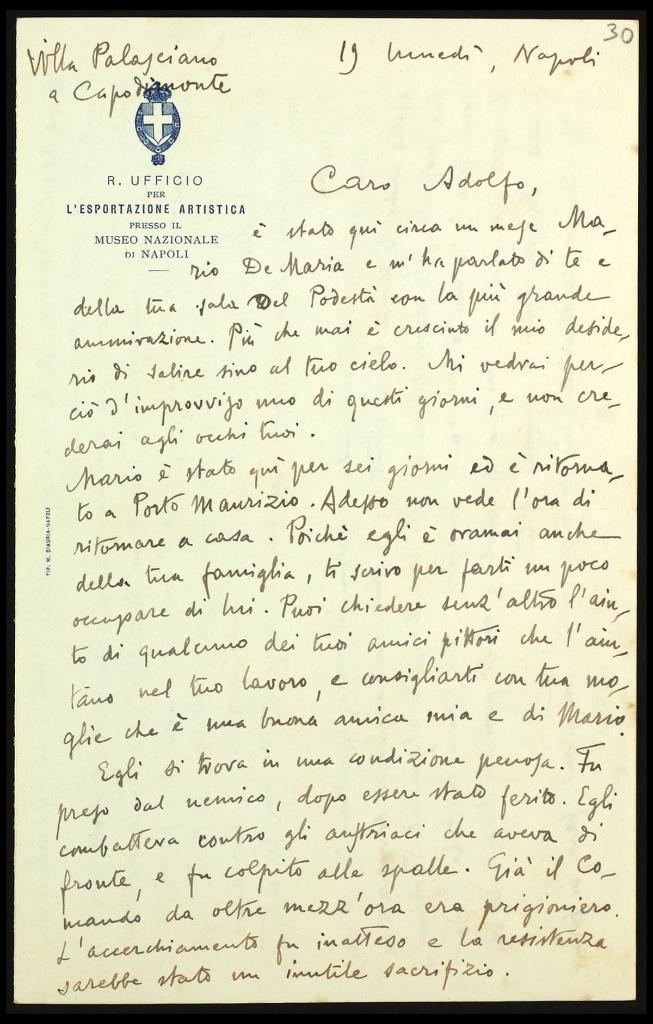 30
Villa Palasciano
a Capodimonte
19 lunedì, Napoli
R. UFFICIO
PER
L'ESPORTAZIONE ARTISTICA
PRESSO IL
MUSEO NAZIONALE
DI NAPOLI
Caro Adolfo,
è stato quì circa un mese Ma-
rio De Maria e m'ha parlato di te e
della tua sala del Podestà con la più grande
ammirazione. Più che mai è cresciuto il mio deside-
rio di salire sino al tuo cielo. Mi vedrai per-
ciò d'improvviso uno di questi giorni, e non cre-
derai agli occhi tuoi.
Mario è stato quì per sei giorni ed è ritorna-
to a Porto Maurizio. Adesso non vede l'ora di
ritornare a casa. Poichè egli è oramai anche
della tua famiglia, ti scrivo per farti un poco
occupare di lui. Puoi chiedere senz'altro l'aiu-
to di qualcuno dei tuoi amici pittori che l'aiu-
tano nel tuo lavoro, e consigliarti con tua mo-
glie che è una buona amica mia e di Mario.
Egli si trova in una condizione penosa. Fu
preso dal nemico, dopo essere stato ferito. Egli
combatteva contro gli austriaci che aveva di
fronte, e fu colpito alle spalle. Già il Co-
mando da oltre mezz'ora era prigioniero.
L'accerchiamento fu inatteso e la resistenza
sarebbe stato un inutile sacrifizio.
TIP. M. D'AURIA-NAPOLI